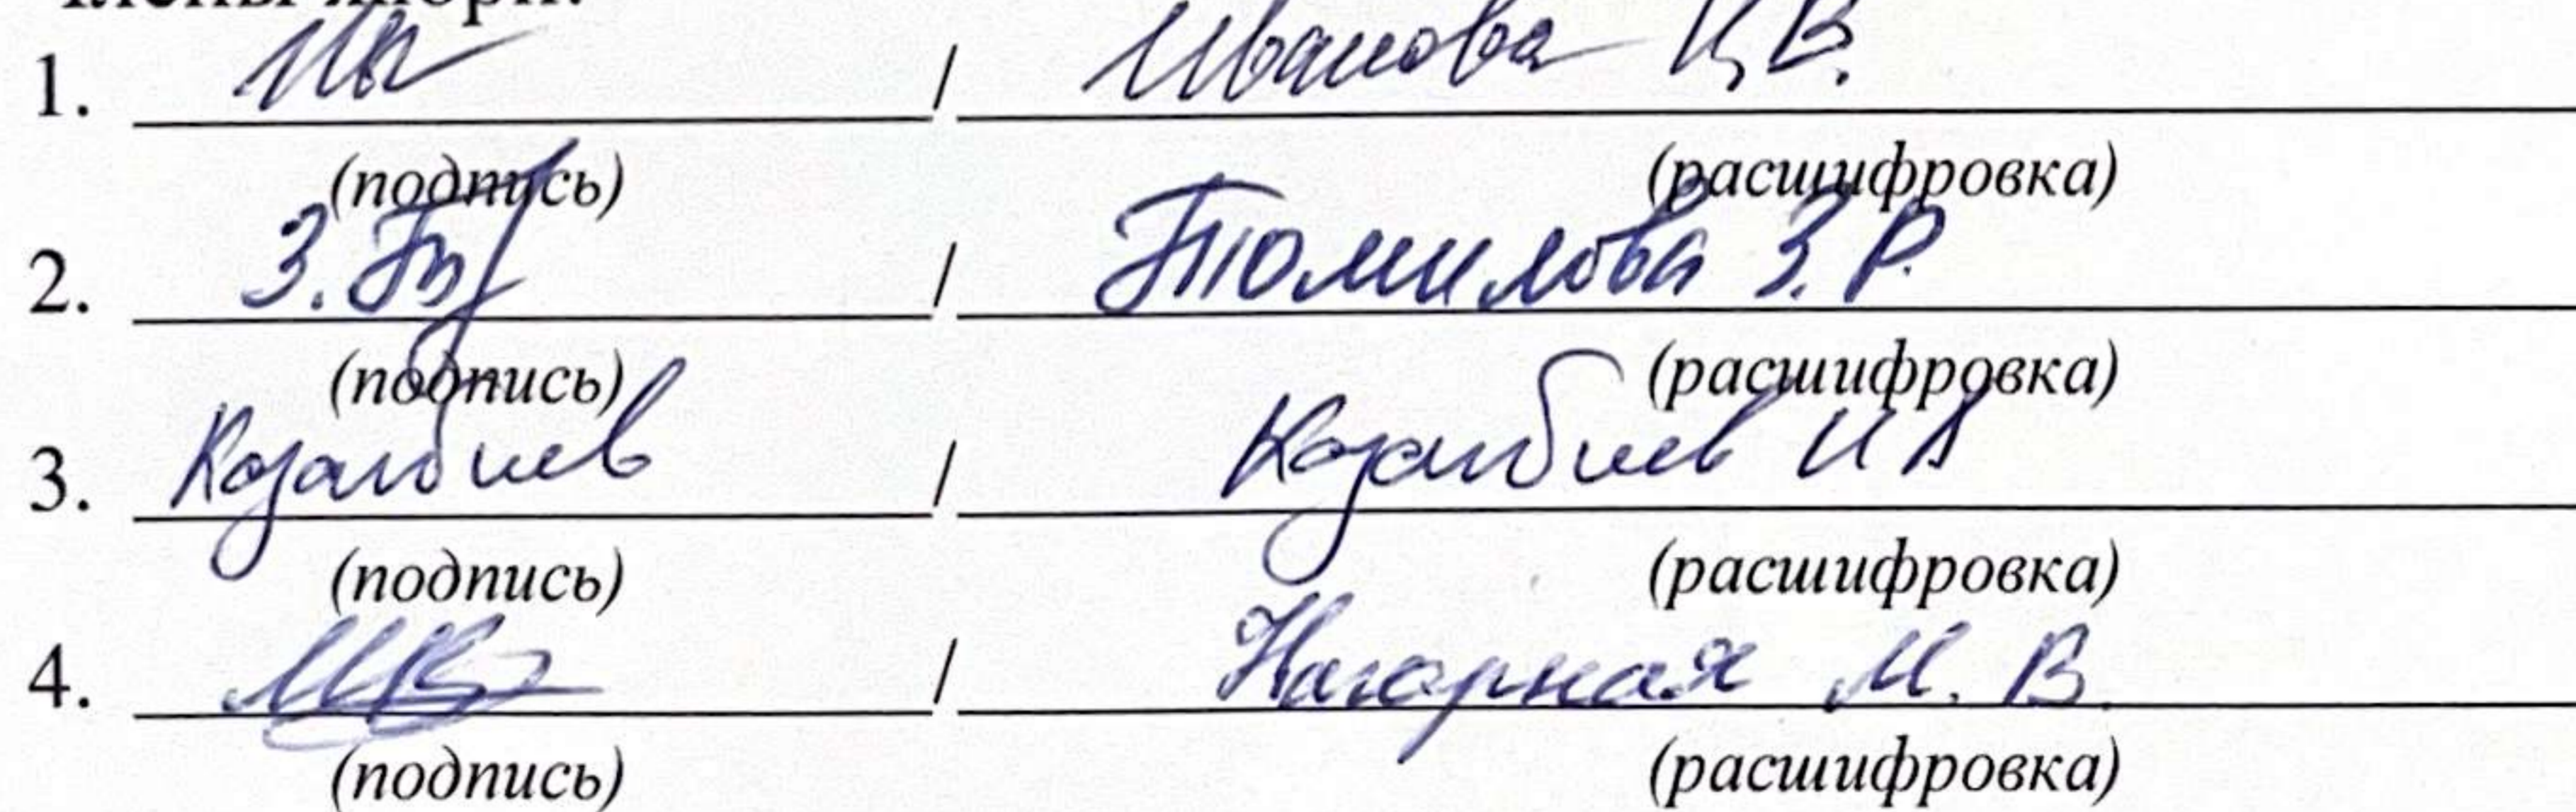 члены жюри:
1. / Иванова И.В.
(подпись) (расшифровка)
2. З. / Томилова З.Р.
(подпись) (расшифровка)
3. Козамбиев / Козамбиев И А
(подпись) (расшифровка)
4. / Нагорная М. В.
(подпись) (расшифровка)